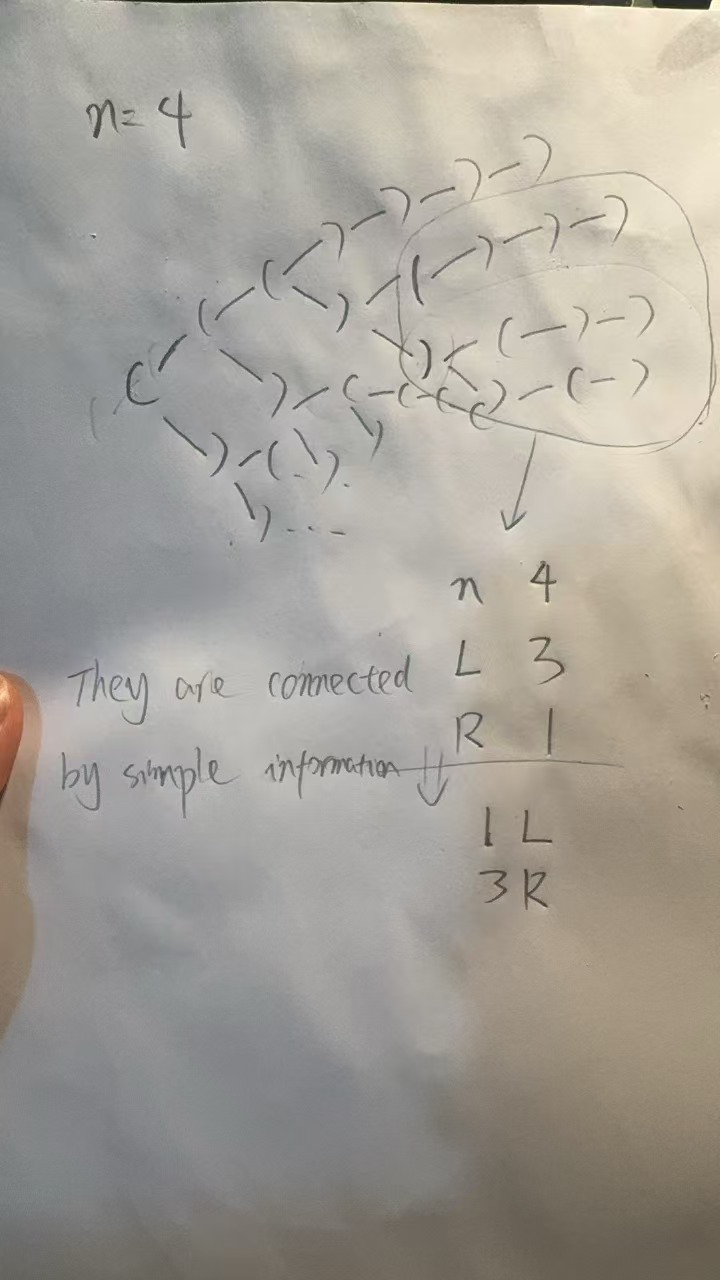 n=4
( ( ( ( ) ) ) )
( ) ) )
( ) )
) ( ( ( ( ) ( )
) ( ) . )
) ...
n 4
L 3
They are connected
R 1
by simple information
1 L
3 R